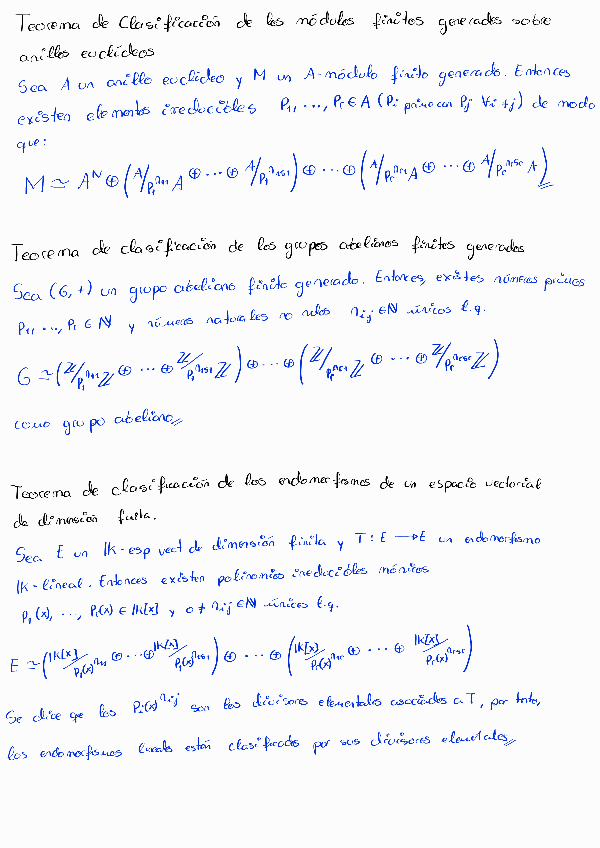 Teorema de Clasificación de los módulos finitos generados sobre
anillos euclídeos
Sea A un anillo euclídeo y M un A-módulo finito generado. Entonces
existen elementos irreducibles P₁, ..., Pᵣ ∈ A (Pᵢ primo con Pⱼ ∀i≠j) de modo
que:
M ≃ A^N ⊕ (A/p₁^{n₁₁}A ⊕ ... ⊕ A/p₁^{n₁s₁}) ⊕ ... ⊕ (A/pᵣ^{nᵣ₁}A ⊕ ... ⊕ A/pᵣ^{nᵣsᵣ}A)
Teorema de clasificación de los grupos abelianos finitos generados
Sea (G,+) un grupo abeliano finito generado. Entonces, existes números primos
P₁, ..., Pᵣ ∈ ℕ y números naturales no nulos nᵢⱼ ∈ ℕ únicos t.q.
G ≃ (ℤ/p₁^{n₁₁}ℤ ⊕ ... ⊕ ℤ/p₁^{n₁s₁}ℤ) ⊕ ... ⊕ (ℤ/pᵣ^{nᵣ₁}ℤ ⊕ ... ⊕ ℤ/pᵣ^{nᵣsᵣ}ℤ)
como grupo abeliano
Teorema de clasificación de los endomorfismos de un espacio vectorial
de dimensión finita.
Sea E un 𝕂-esp vect de dimensión finita y T: E → E un endomorfismo
𝕂-lineal. Entonces existen polinomios irreducibles mónicos
p₁(x), ..., pᵣ(x) ∈ 𝕂[x] y 0 ≠ nᵢⱼ ∈ ℕ únicos t.q.
E ≃ (𝕂[x]/p₁(x)^{n₁₁} ⊕ ... ⊕ 𝕂[x]/p₁(x)^{n₁s₁}) ⊕ ... ⊕ (𝕂[x]/pᵣ(x)^{n₁r} ⊕ ... ⊕ 𝕂[x]/pᵣ(x)^{nᵣsᵣ})
Se dice que los pᵢ(x)^{nᵢⱼ} son los divisores elementales asociados a T, por tanto,
los endomorfismos lineales están clasificados por sus divisores elementales